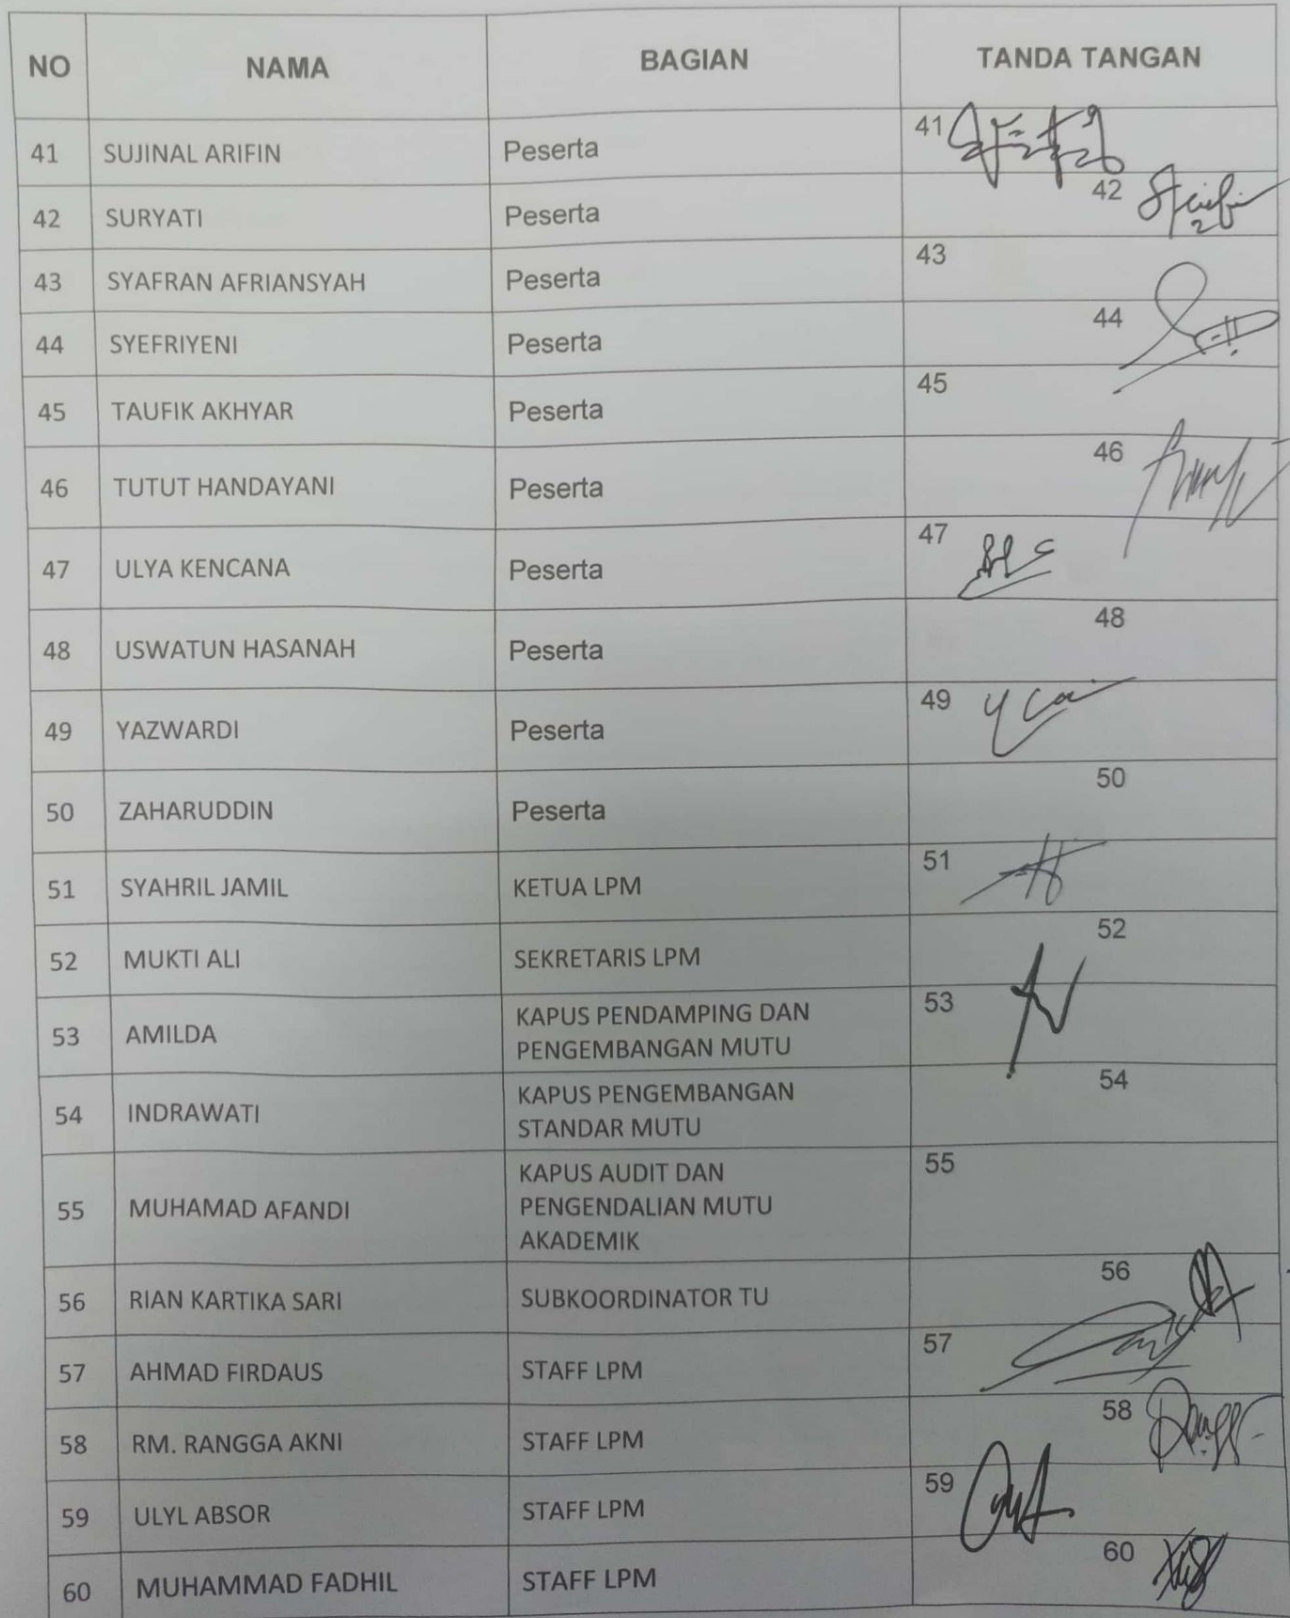 NO NAMA BAGIAN TANDA TANGAN
41 SUJINAL ARIFIN Peserta 41
42 SURYATI Peserta 42
43 SYAFRAN AFRIANSYAH Peserta 43
44 SYEFRIYENI Peserta 44
45 TAUFIK AKHYAR Peserta 45
46 TUTUT HANDAYANI Peserta 46
47 ULYA KENCANA Peserta 47
48 USWATUN HASANAH Peserta 48
49 YAZWARDI Peserta 49
50 ZAHARUDDIN Peserta 50
51 SYAHRIL JAMIL KETUA LPM 51
52 MUKTI ALI SEKRETARIS LPM 52
53 AMILDA KAPUS PENDAMPING DAN 53
PENGEMBANGAN MUTU
54 INDRAWATI KAPUS PENGEMBANGAN 54
STANDAR MUTU
55 MUHAMAD AFANDI KAPUS AUDIT DAN 55
PENGENDALIAN MUTU
AKADEMIK
56 RIAN KARTIKA SARI SUBKOORDINATOR TU 56
57 AHMAD FIRDAUS STAFF LPM 57
58 RM. RANGGA AKNI STAFF LPM 58
59 ULYL ABSOR STAFF LPM 59
60 MUHAMMAD FADHIL STAFF LPM 60